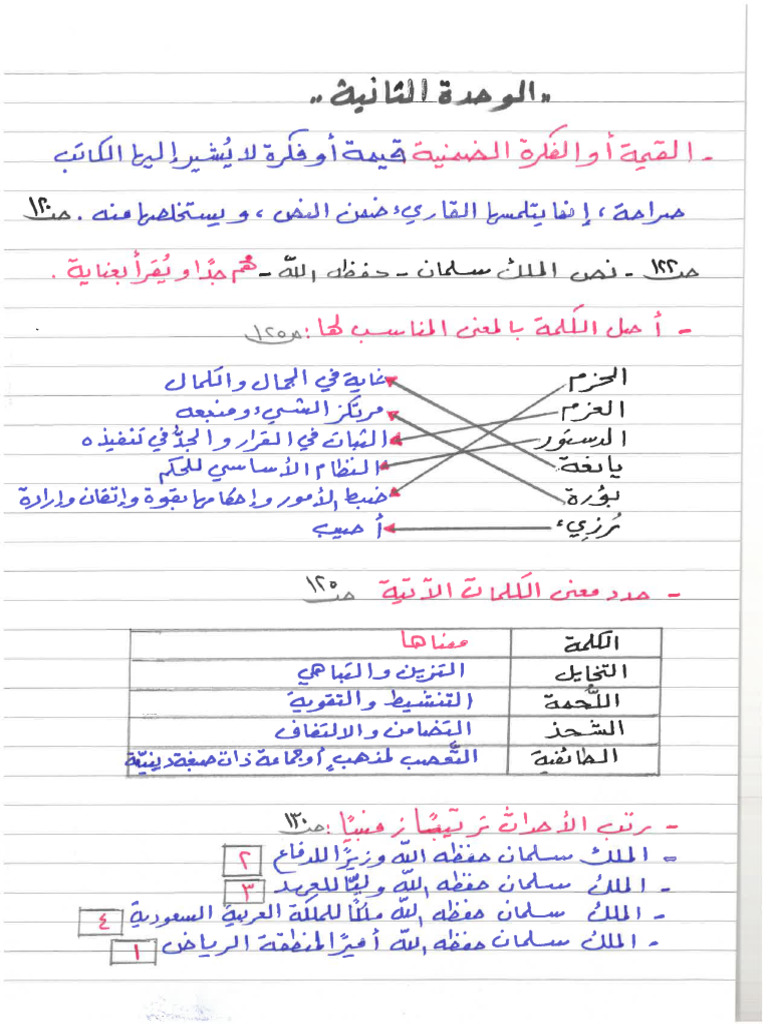 .. الوحدة الثانية ..
- القيمة أو الفكرة الضمنية قيمة أو فكرة لا يُشير إليها الكاتب
صراحة ، إنما يتلمسها القاريء ضمن النص ، ويستخلصها منه . ص١٢٠
ص١٢٢ - نص الملك سلمان - حفظه الله - هم جدًا و يُقرأ بعناية .
- أصل الكلمة بالمعنى المناسب لها : ص١٢٥
الحزم غاية في الجمال والكمال
العزم مرتكز الشيء ومنبعه
الدستور الثبات في القرار والجدُّ في تنفيذه
يانعة النظام الأساسي للحكم
بؤرة ضبط الأمور وإحكامها بقوة وإتقان وإرادة
رُزِيء أصيب
- حدد معنى الكلمات الآتية ص١٢٥
الكلمة معناها
التخايل التزين والتباهي
اللُّحمة التنشيط والتقوية
الشحذ التضامن والالتفاف
الطائفية التَّعصب لمذهبٍ أو جماعة ذات صبغة دينيّة
- رتب الأحداث ترتيبًا زمنيًا : ص١٣٠
- الملك سلمان حفظه الله وزيرًا للدفاع ٢
- الملك سلمان حفظه الله وليًّا للعهد ٣
- الملك سلمان حفظه الله ملكًا للمملكة العربية السعودية ٤
- الملك سلمان حفظه الله أميرًا لمنطقة الرياض ١